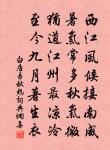 西江風候接南威
暑氣常多秋氣微
猶道江州最涼冷
至今九月著生衣
白居易秋熱詞典網